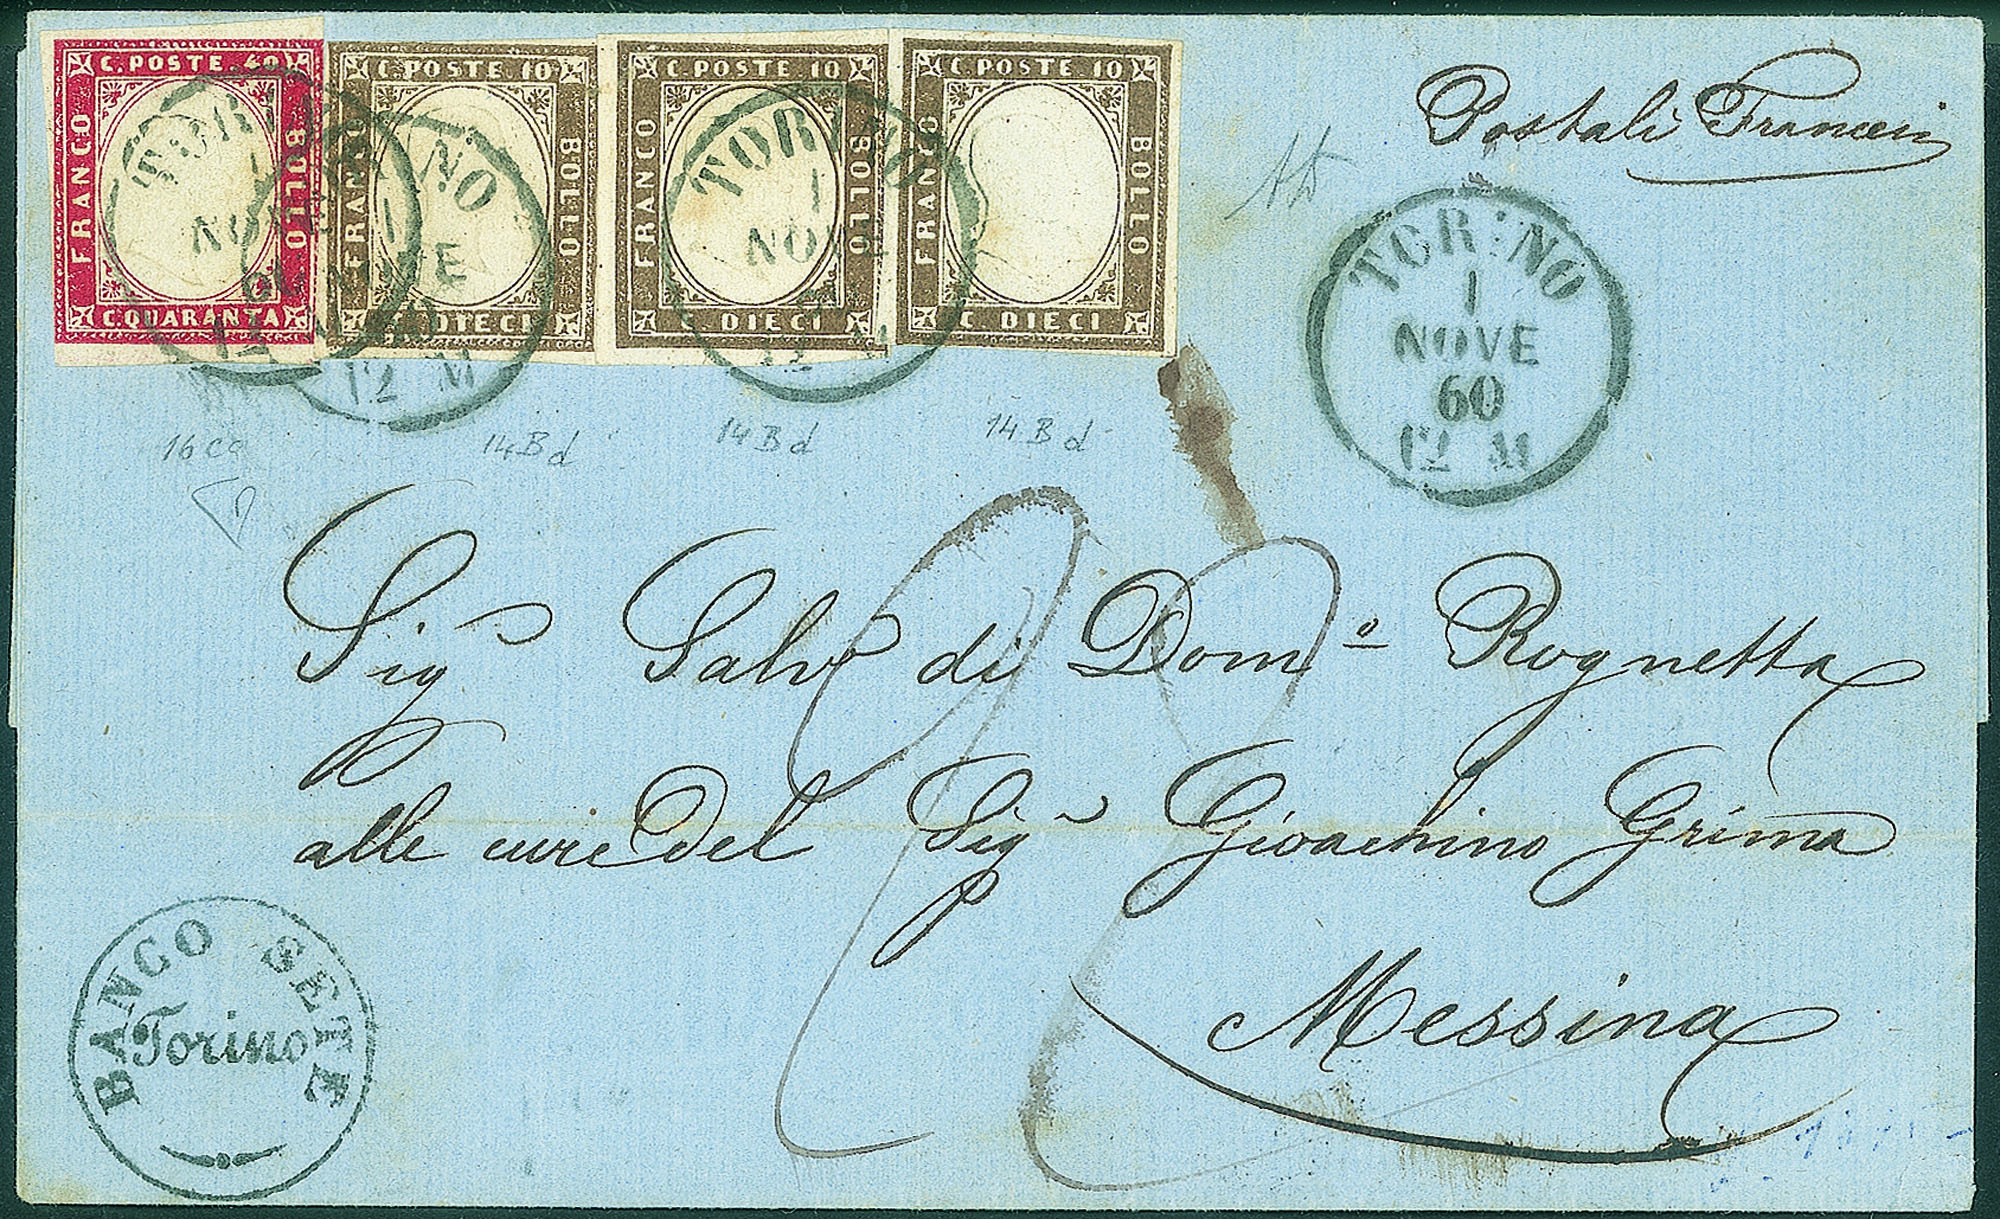 C. POSTE. 40
FRANCO
BOLLO
C. QUARANTA
C. POSTE 10
FRANCO
BOLLO
C. DIECI
C. POSTE 10
FRANCO
BOLLO
C. DIECI
C. POSTE 10
FRANCO
BOLLO
C DIECI
TORINO
1
NOVE
60
12 M
TORINO
1
NOVE
60
12 M
TORINO
1
NOVE
60
12 M
Postali Francesi
TORINO
1
NOVE
60
12 M
16 Ca
14Bd
14Bd
14Bd
Sigr Salvo di Domo Rognetta
alle cure del Sigr Gioachino Grima
Messina
BANCO SETE
Torino